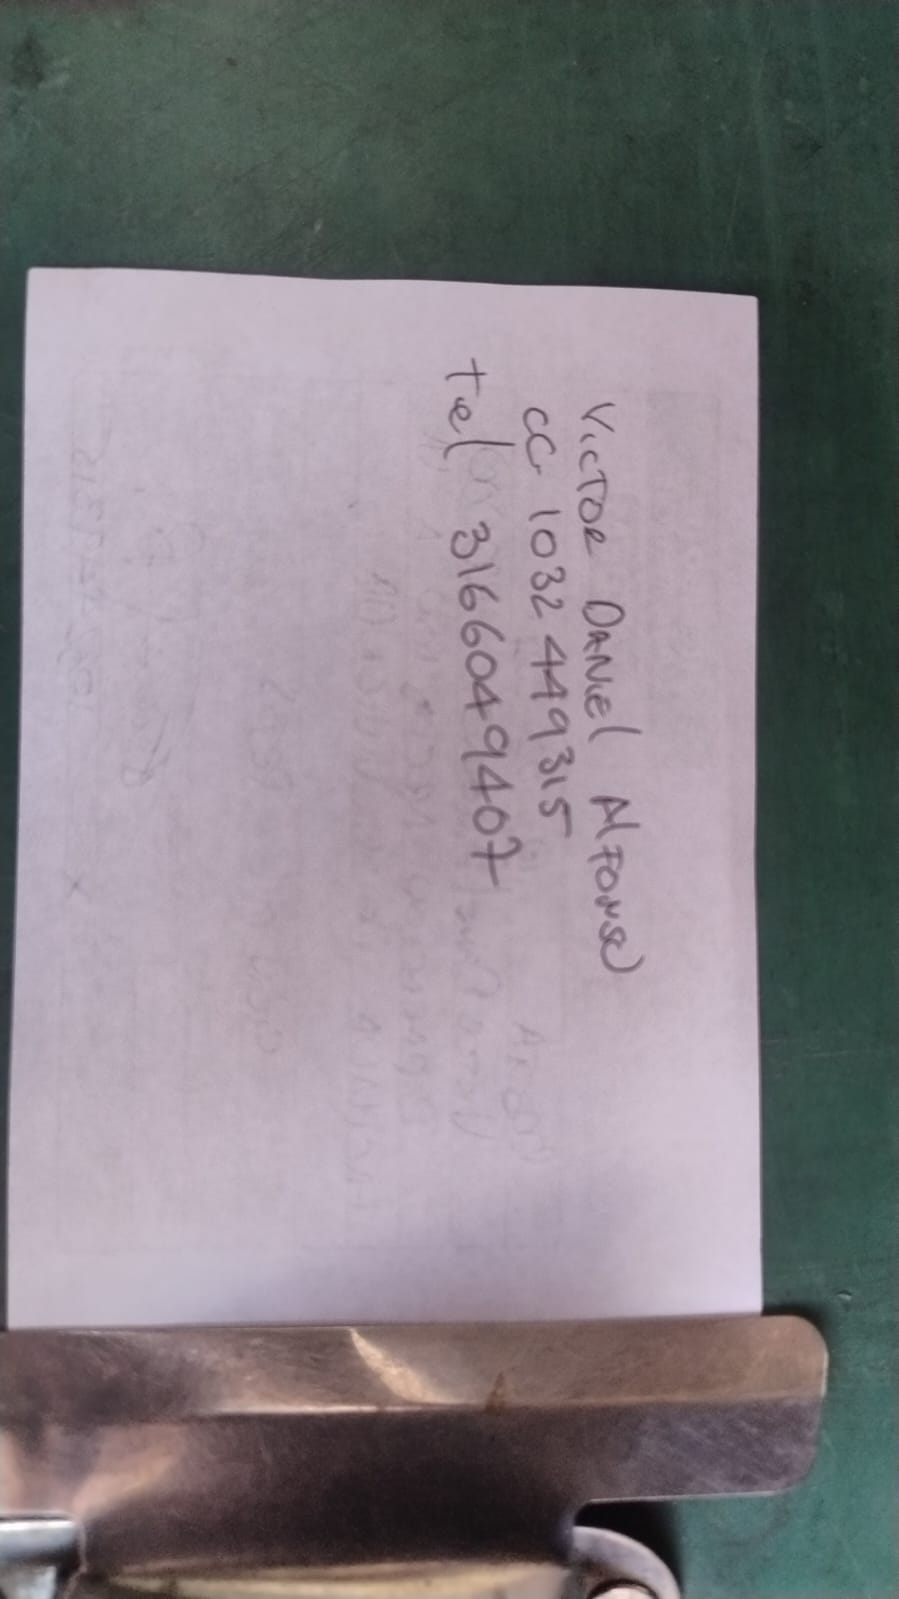 VICTOR DANIEL Alfonso
CC. 1032 449315
tel 3166049407